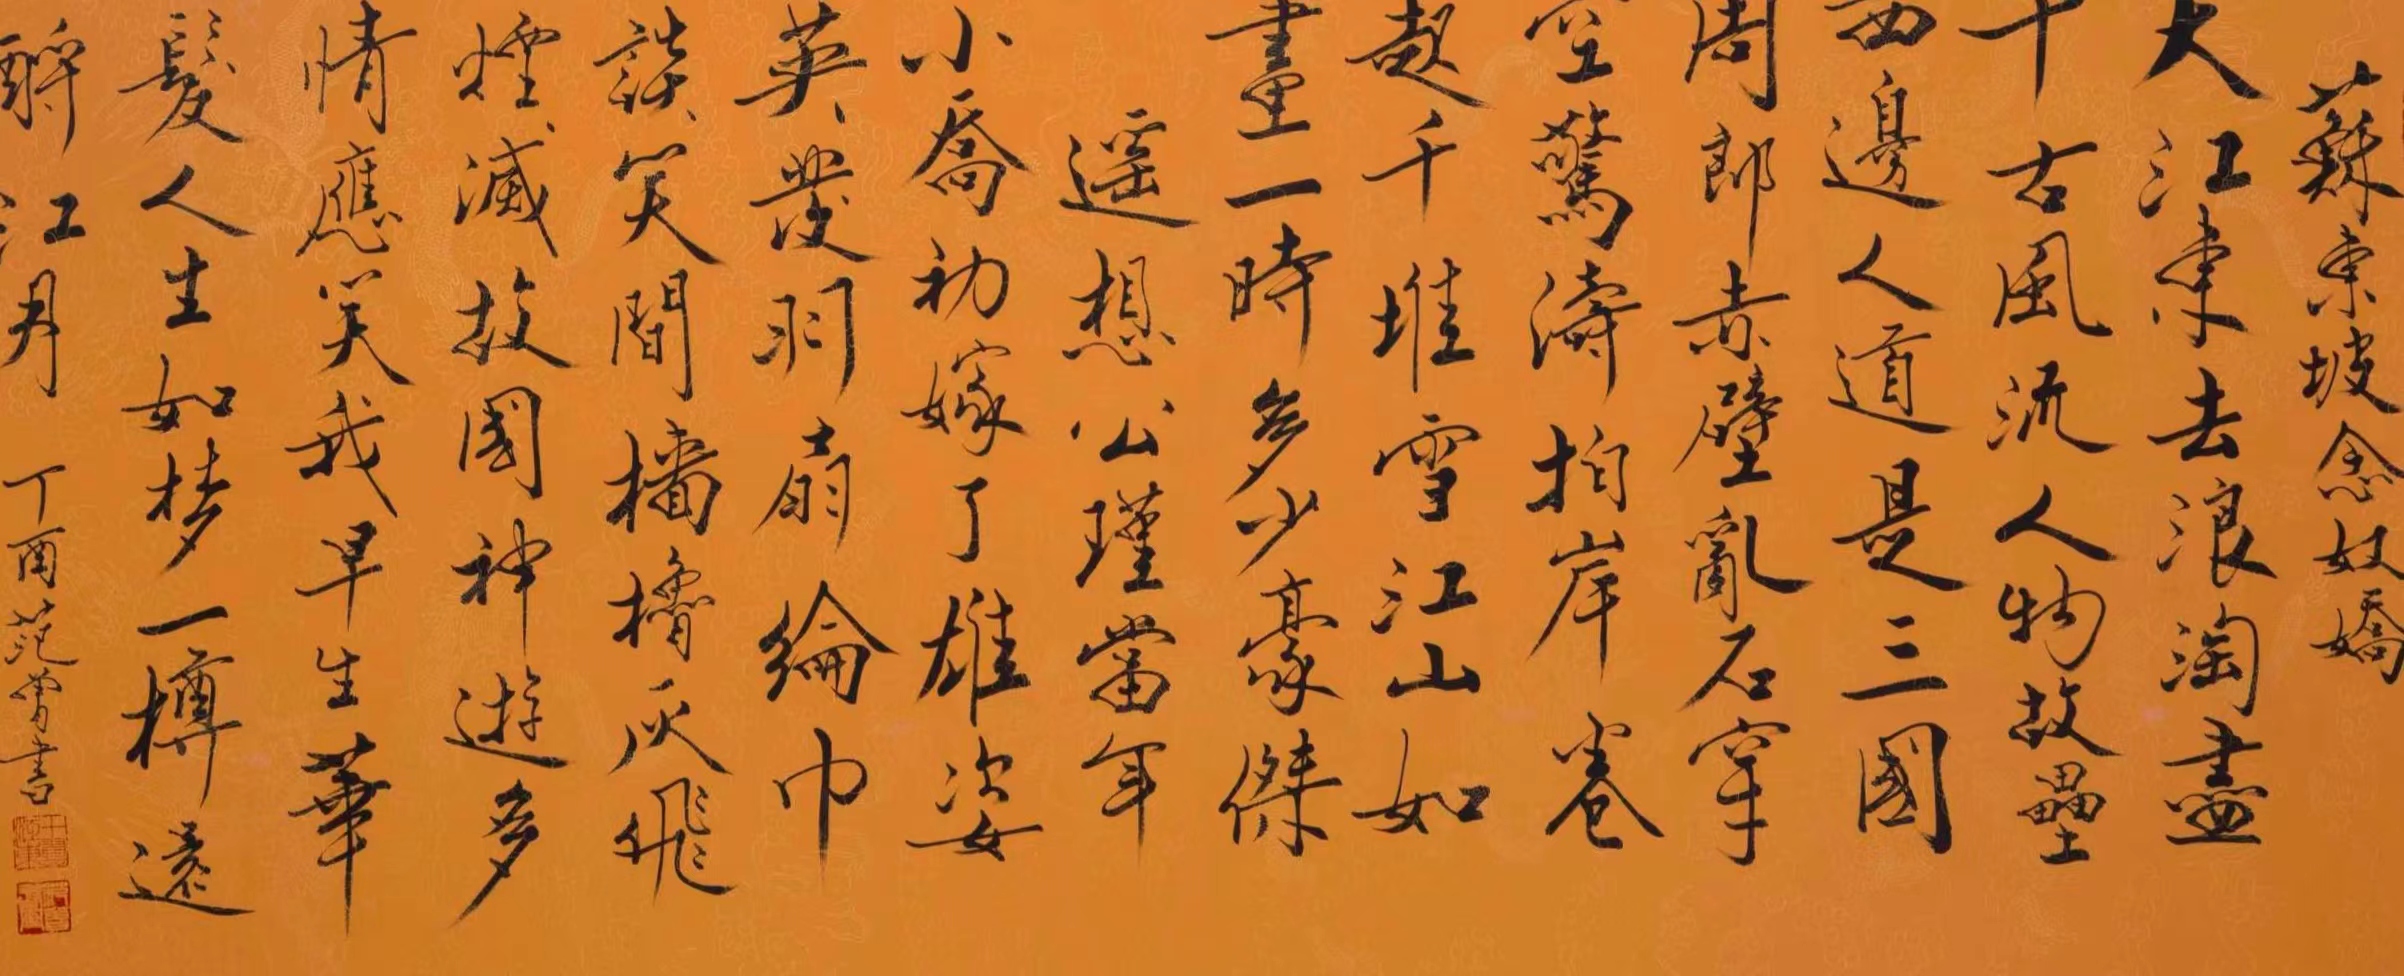 蘇東坡念奴嬌
大江東去浪淘盡
千古風流人物故壘
西邊人道是三國
周郎赤壁亂石穿
空驚濤拍岸卷
起千堆雪江山如
畫一時多少豪傑
遥想公瑾當年
小喬初嫁了雄姿
英發羽扇綸巾
談笑間檣櫓灰飛
煙滅故國神遊多
情應笑我早生華
髮人生如梦一樽還
酹江月
丁酉范曾書